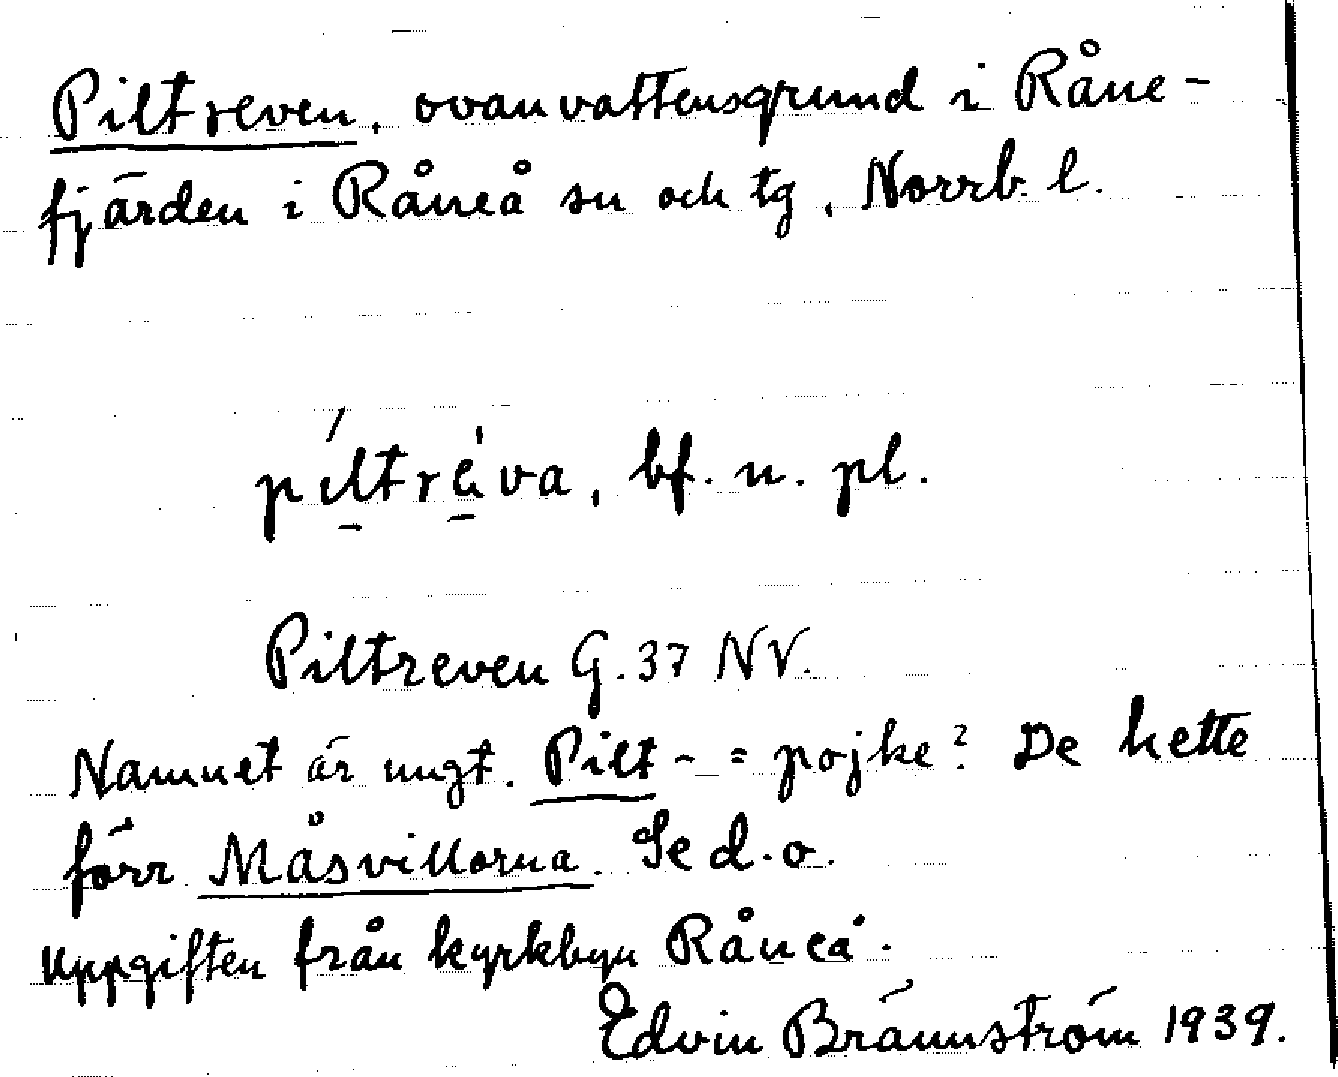 Piltreven, ovanvattensgrund i Råne-
fjärden i Råneå sn och tg, Norrb. l.
píltrè̱va, bf. n. pl.
Piltreven G. 37 NV.
Namnet är ungt. Pilt- = pojke? De hette
förr Måsvillorna. Se d. o.
Uppgiften från kyrkbyn Råneå.
Edvin Brännström 1939.